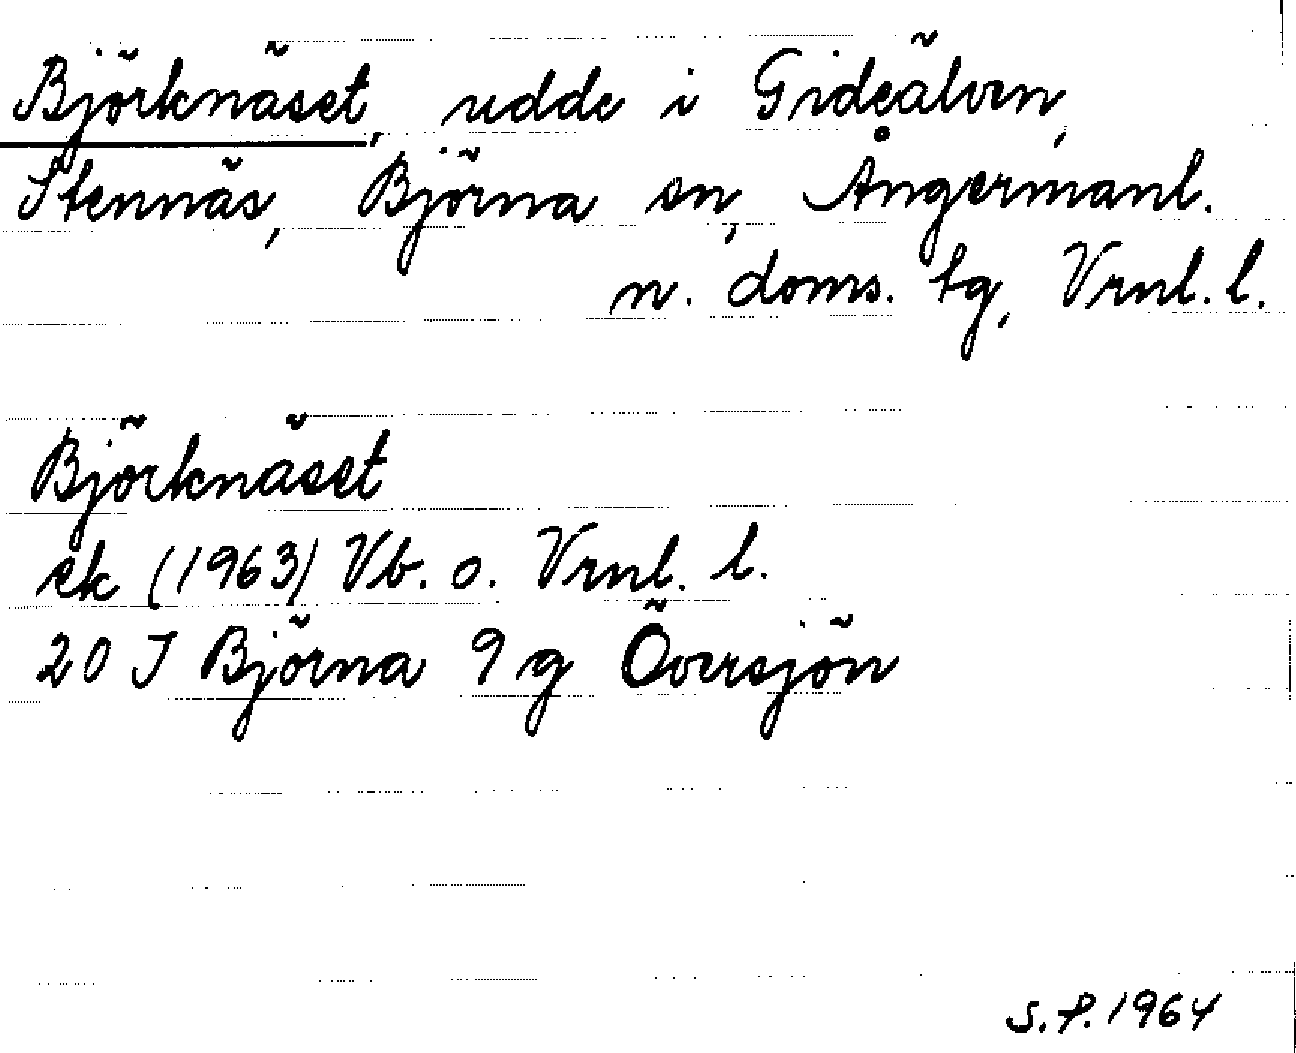 Björknäset, udde i Gideälven,
Stennäs, Björna sn, Ångermanl.
n. doms. tg, Vrnl. l.
Björknäset
ek (1963) Vb. o. Vrnl. l.
20 J Björna 9 g Översjön
S.P. 1964